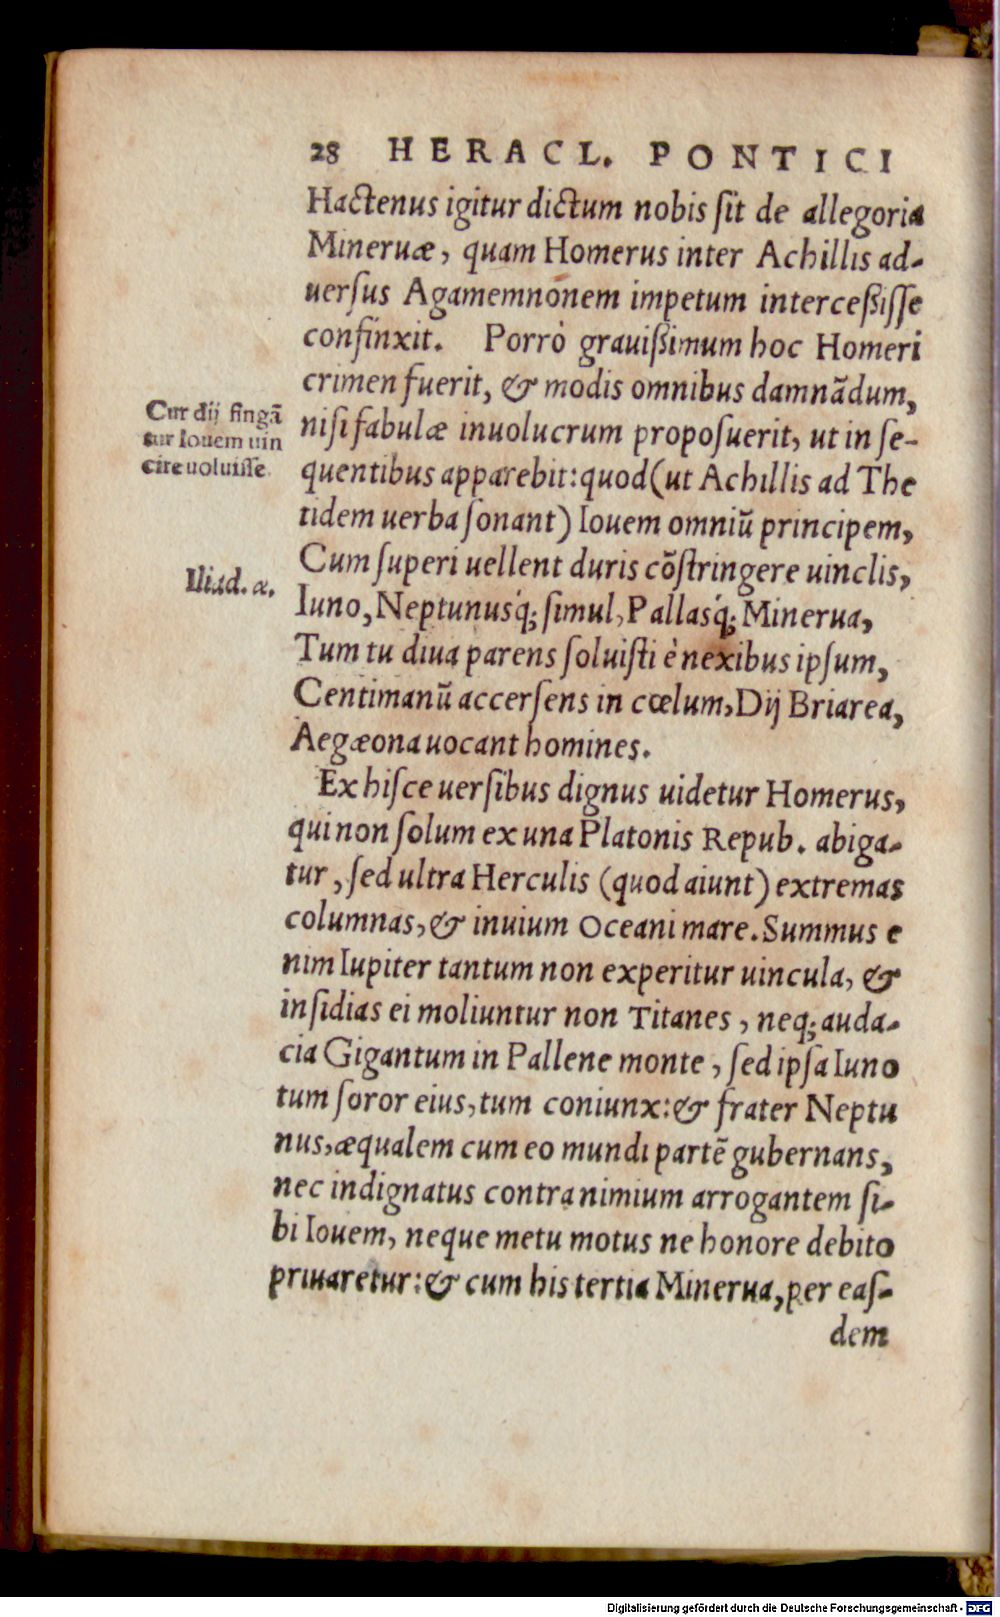 28 HERACL. PONTICI
Hactenus igitur dictum nobis ſit de allegoria
Mineruæ, quam Homerus inter Achillis ad-
uerſus Agamemnonem impetum interceßiſſe
confinxit. Porrò grauißimum hoc Homeri
crimen fuerit, & modis omnibus damnãdum,
Cur dij fingã
tur Iouem uin
cire uoluiſſe
niſi fabulæ inuolucrum propoſuerit, ut in ſe-
quentibus apparebit: quod (ut Achillis ad The
tidem uerba ſonant) Iouem omniũ principem,
Cum ſuperi uellent duris cõſtringere uinclis,
Iliad. α.
Iuno, Neptunusq́; ſimul, Pallasq́; Minerua,
Tum tu diua parens ſoluiſti è nexibus ipſum,
Centimanũ accerſens in cœlum, Dij Briarea,
Aegæona uocant homines.
Ex hiſce uerſibus dignus uidetur Homerus,
qui non ſolum ex una Platonis Repub. abiga-
tur, ſed ultra Herculis (quod aiunt) extremas
columnas, & inuium Oceani mare. Summus e
nim Iupiter tantum non experitur uincula, &
inſidias ei moliuntur non Titanes, neq; auda-
cia Gigantum in Pallene monte, ſed ipſa Iuno
tum ſoror eius, tum coniunx: & frater Neptu
nus, æqualem cum eo mundi partẽ gubernans,
nec indignatus contra nimium arrogantem ſi-
bi Iouem, neque metu motus ne honore debito
priuaretur: & cum his tertia Minerua, per eaſ-
dem
Digitalisierung gefördert durch die Deutsche Forschungsgemeinschaft - DFG